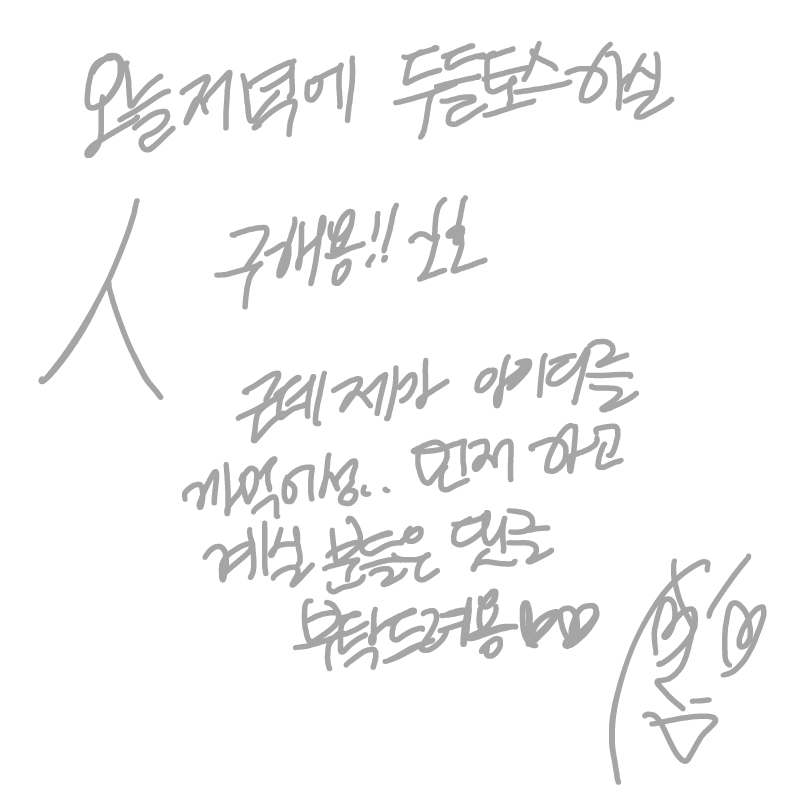 오늘 저녁에 두들토스 하실
人
구해용!!
근데 제가 아이디를
까먹어성.. 먼저 하고
계실 분들은 댓글
부탁드려용